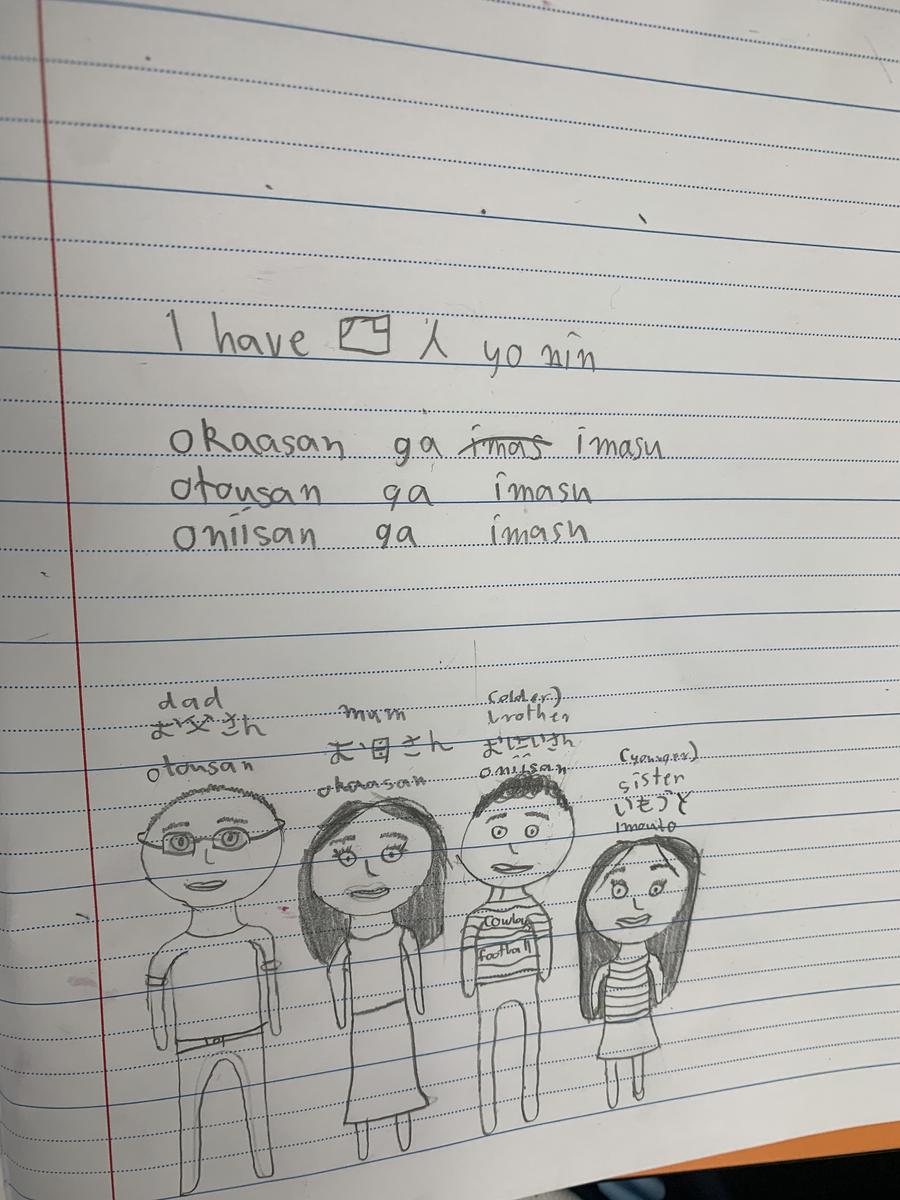 I have 四人 yo nin
okaasan ga imas imasu
otousan ga imasu
oniisan ga imasu
dad
お父さん
otousan
mum
お母さん
okaasan
(older)
brother
おにいさん
oniisan
(younger)
sister
いもうと
imouto
Cowboy
football